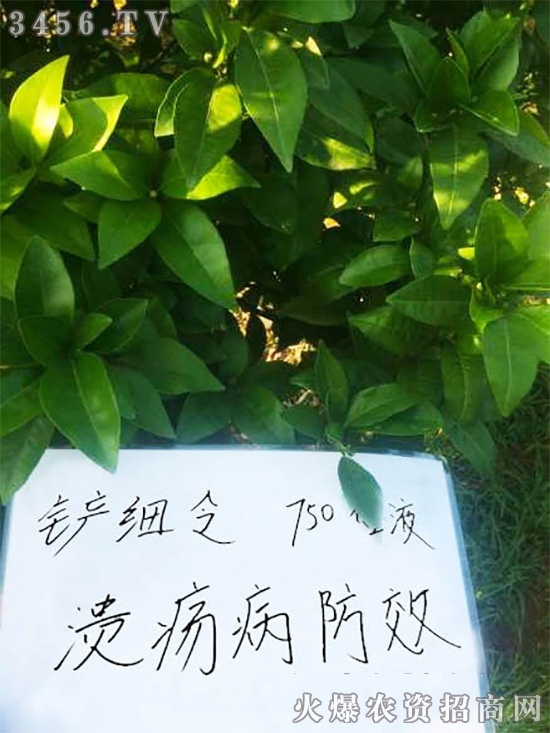 3456.TV
铲细令 750倍液
溃疡病防效
火爆农资招商网